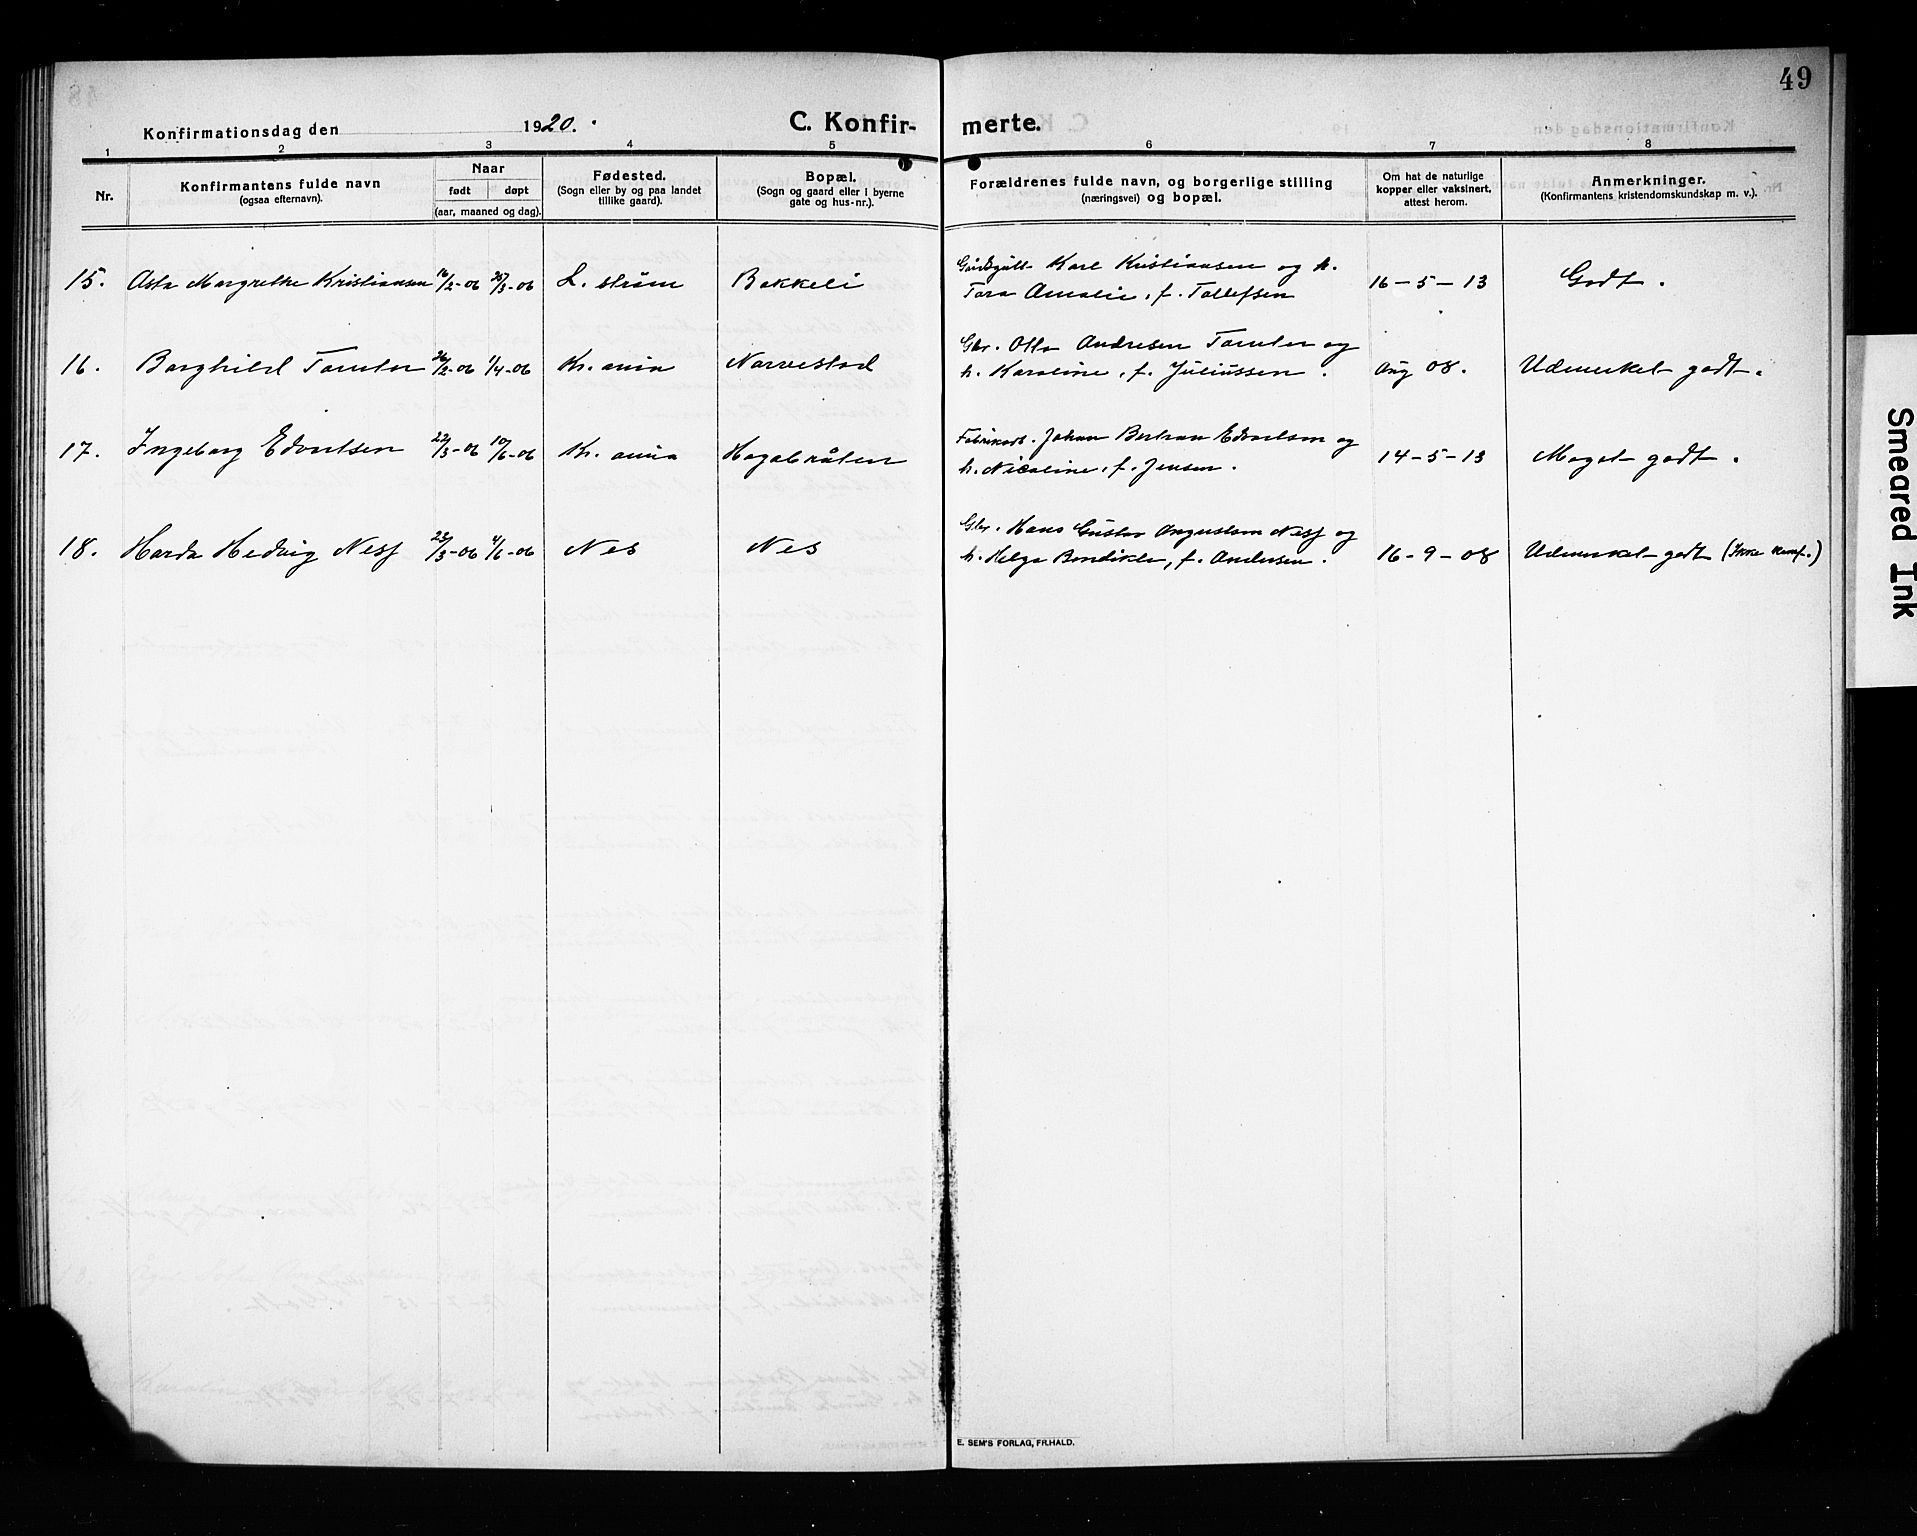 49
Konfirmationsdag den 1920.
C. Konfir- merte.
1 2 3 4 5 6 7 8
Nr.
Konfirmantens fulde navn
(ogsaa efternavn).
Naar
født døpt
(aar, maaned og dag).
Fødested.
(Sogn eller by og paa landet
tillike gaard).
Bopæl.
(Sogn og gaard eller i byerne
gate og hus-nr.).
Forældrenes fulde navn, og borgerlige stilling
(næringsvei) og bopæl.
Om hat de naturlige
kopper eller vaksinert,
attest herom.
Anmerkninger.
(Konfirmantens kristendomskundskap m. v.).
15. Asta Margrethe Kristiansen 16/2-06 25/3-06 L. strøm Bakkeli
Karl Kristiansen og h.
Tara Amalie, f. Tollefsen
16-5-13 Godt.
16. Borghild Tomter 26/2-06 1/4-06 Kr. ania Narvestad
Gbr. Otto Andresen Tomter og
h. Karoline, f. Juliussen.
Aug 08. Udmerket godt.
17. Ingeborg Edvartsen 22/3-06 10/6-06 Kr. ania Hagabråten
Johan Bertran Edvartsen og
h. Nicoline, f. Jensen.
14-5-13 Meget godt.
18. Harda Hedvig Ness 23/3-06 4/6-06 Nes Nes
Gbr. Hans Gustav Augustsen Ness og
h. Helga Bendikte, f. Andersen.
16-9-08 Udmerket godt (Ikke konf.)
E. SEM'S FORLAG, FR.HALD.
Smeared Ink